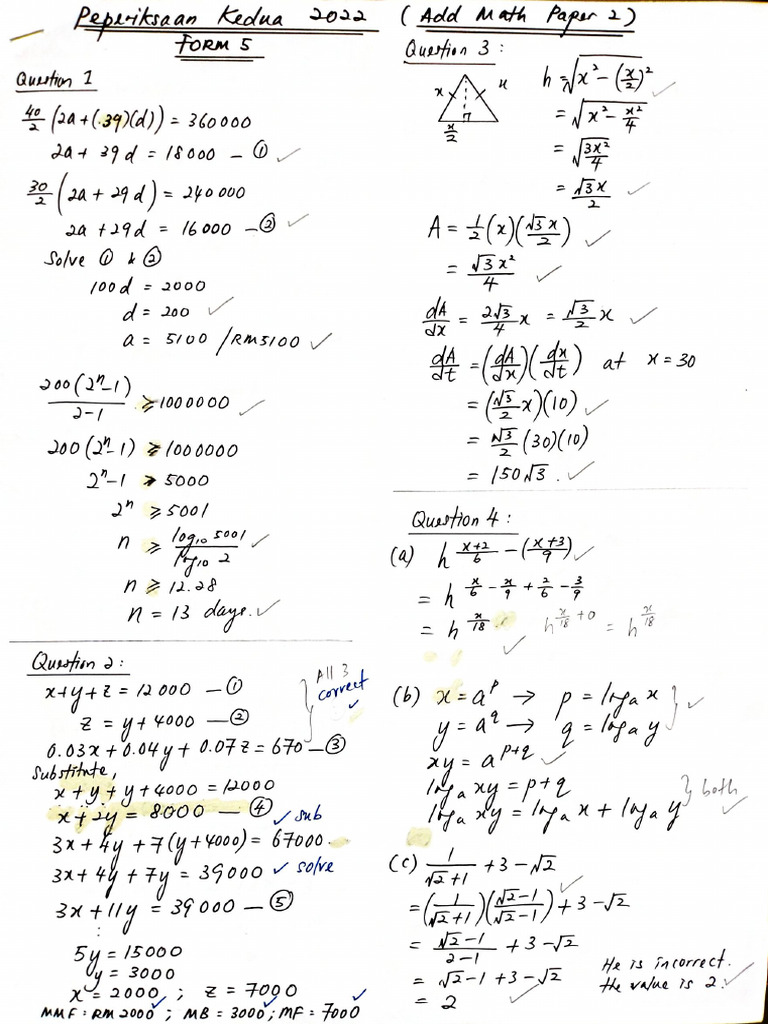 Peperiksaan Kedua 2022 (Add Math Paper 2)
FORM 5
Question 1
40/2 (2a+(39)(d)) = 360000
2a + 39d = 18000 — ①
30/2 (2a + 29d) = 240000
2a + 29d = 16000 — ②
Solve ① & ②
100d = 2000
d = 200
a = 5100 / RM5100
200(2ⁿ-1)/2-1 ≥ 1000000
200(2ⁿ-1) ≥ 1000000
2ⁿ-1 ≥ 5000
2ⁿ ≥ 5001
n ≥ log₁₀ 5001/log₁₀ 2
n ≥ 12.28
n = 13 days.
Question 2:
x+y+z = 12000 — ①
z = y+4000 — ②
0.03x+0.04y+0.07z = 670 — ③
All 3
correct
Substitute,
x + y + y + 4000 = 12000
x + 2y = 8000 — ④
sub
3x + 4y + 7(y+4000) = 67000
3x + 4y + 7y = 39000
solve
3x + 11y = 39000 — ⑤
:
5y = 15000
y = 3000
x = 2000 ; z = 7000
MMF = RM2000 ; MB = 3000; MF = 7000
Question 3:
x x
x/2
h = √(x² - (x/2)²)
= √(x² - x²/4)
= √(3x²/4)
= √3x/2
A = 1/2 (x)(√3x/2)
= √3x²/4
dA/dx = 2√3/4 x = √3/2 x
dA/dt = (dA/dx)(dx/dt) at x = 30
= (√3/2 x)(10)
= √3/2 (30)(10)
= 150√3.
Question 4:
(a) h^(x+2/6 - (x+3/9))
= h^(x/6 - x/9 + 2/6 - 3/9)
= h^(x/18) h^(x/18 + 0) = h^(x/18)
(b) x = aᵖ → p = logₐ x
y = a^q → q = logₐ y
xy = a^(p+q)
logₐ xy = p+q
logₐ xy = logₐ x + logₐ y
both
(c) 1/√2+1 + 3 - √2
= (1/√2+1)(√2-1/√2-1) + 3 - √2
= √2-1/2-1 + 3 - √2
= √2 - 1 + 3 - √2
= 2
He is incorrect.
the value is 2.